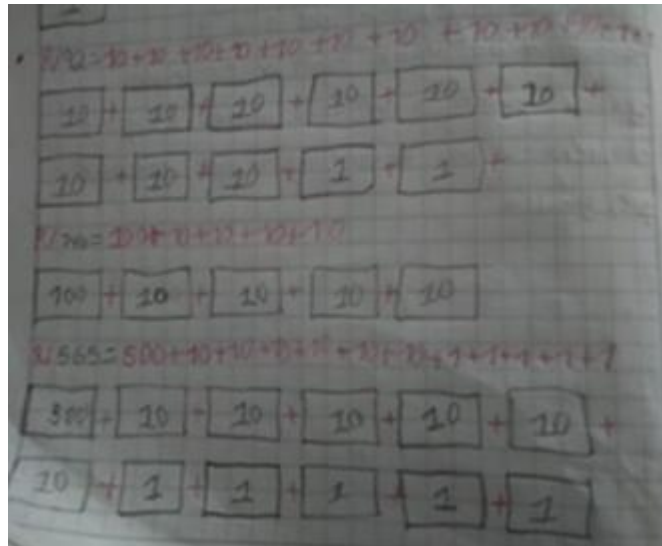 R/92=10+10+10+10+10+10+10+10+10+1+1
10+10+10+10+10+10+
10+10+10+1+1+
100+10+10+10+10
100+10+10+10+10
R/565=500+10+10+10+10+10+10+1+1+1+1+1
500+10+10+10+10+10+
10+1+1+1+1+1